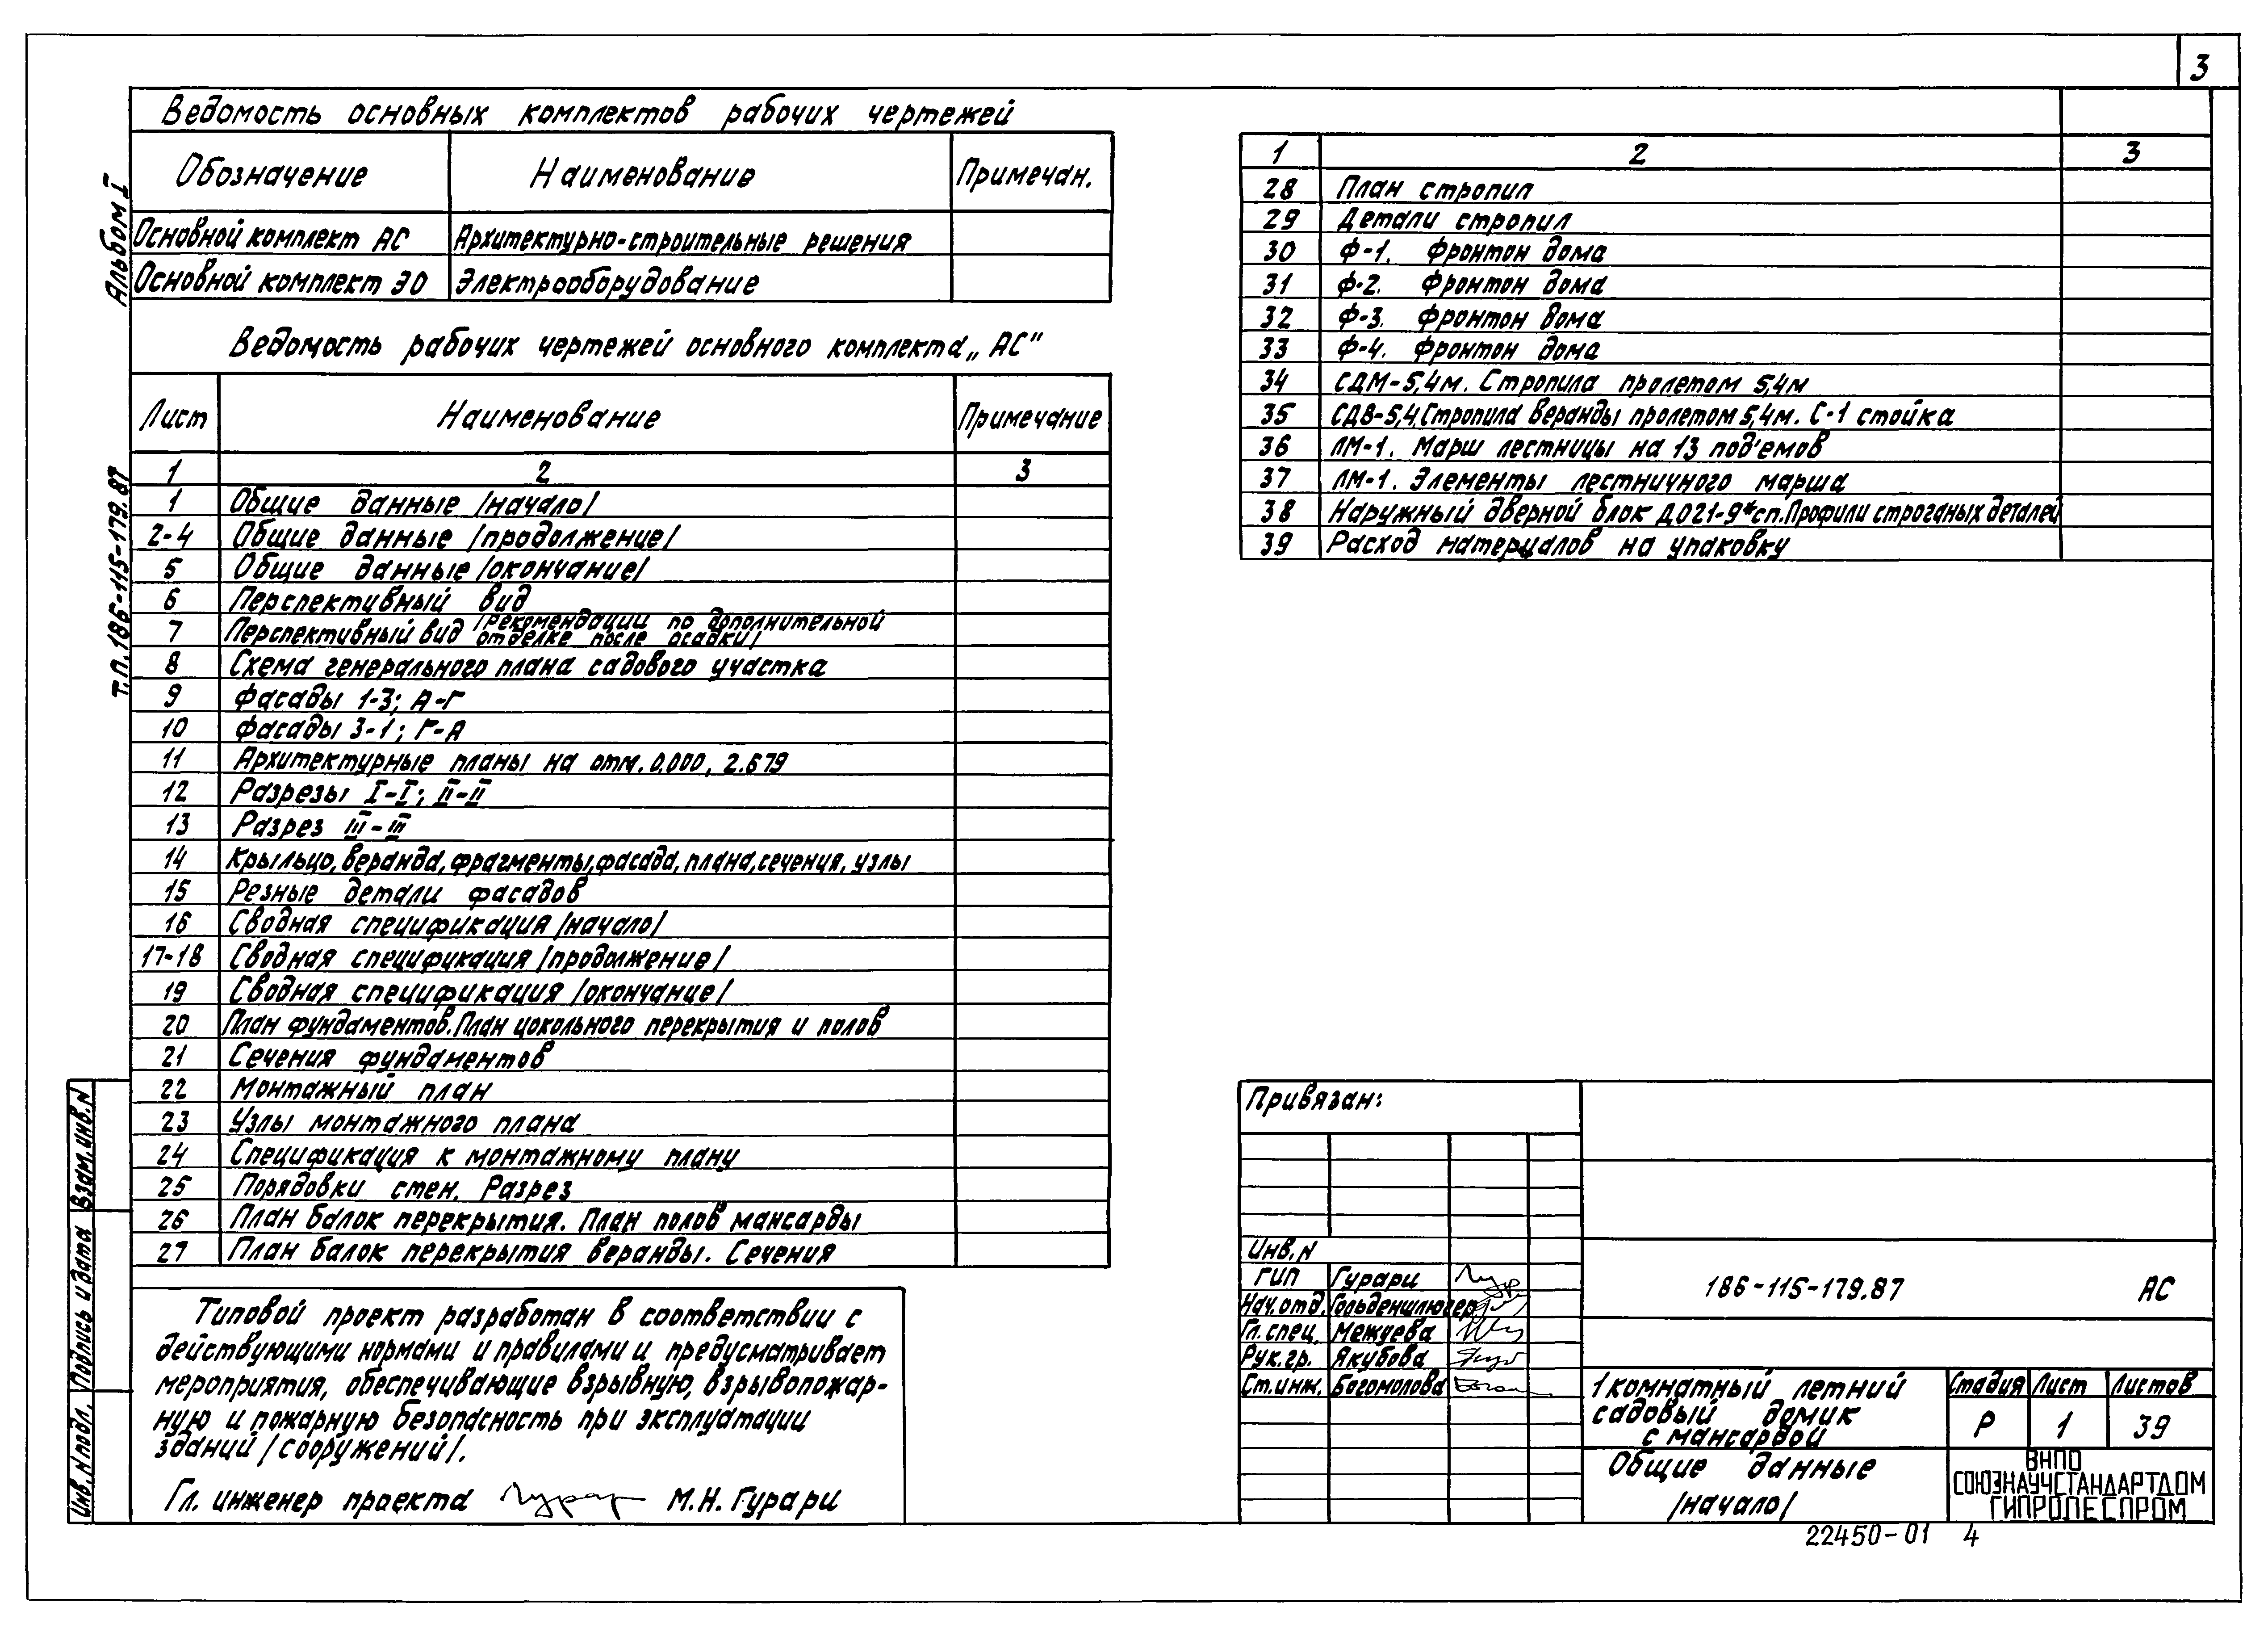 3
Альбом I
т.п. 186-115-179.87
Ведомость основных комплектов рабочих чертежей
Обозначение Наименование Примечан.
Основной комплект АС Архитектурно-строительные решения
Основной комплект ЭО Электрооборудование
Ведомость рабочих чертежей основного комплекта „АС"
Лист Наименование Примечание
1 2 3
1 Общие данные /начало/
2-4 Общие данные /продолжение/
5 Общие данные /окончание/
6 Перспективный вид
7 Перспективный вид /рекомендации по дополнительной
отделке после осадки/
8 Схема генерального плана садового участка
9 Фасады 1-3; А-Г
10 Фасады 3-1; Г-А
11 Архитектурные планы на отм. 0.000, 2.679
12 Разрезы I-I; II-II
13 Разрез III-III
14 Крыльцо, веранда, фрагменты, фасада, плана, сечения, узлы
15 Резные детали фасадов
16 Сводная спецификация /начало/
17-18 Сводная спецификация /продолжение/
19 Сводная спецификация /окончание/
20 План фундаментов. План цокольного перекрытия и полов
21 Сечения фундаментов
22 Монтажный план
23 Узлы монтажного плана
24 Спецификация к монтажному плану
25 Порядовки стен. Разрез
26 План балок перекрытия. План полов мансарды
27 План балок перекрытия веранды. Сечения
1 2 3
28 План стропил
29 Детали стропил
30 Ф-1. Фронтон дома
31 Ф-2. Фронтон дома
32 Ф-3. Фронтон дома
33 Ф-4. Фронтон дома
34 СДМ-5,4м. Стропила пролетом 5,4м
35 СДВ-5,4. Стропила веранды пролетом 5,4м. С-1 стойка
36 ЛМ-1. Марш лестницы на 13 под'емов
37 ЛМ-1. Элементы лестничного марша
38 Наружный дверной блок Д021-9*сп. Профили строганых деталей
39 Расход материалов на упаковку
Типовой проект разработан в соответствии с
действующими нормами и правилами и предусматривает
мероприятия, обеспечивающие взрывную, взрывопожар-
ную и пожарную безопасность при эксплуатации
зданий /сооружений/.
Гл. инженер проекта М.Н. Гурари
Взам. инв. N
Подпись и дата
Инв. N подл.
Привязан:
Инв. N
ГИП Гурари
Нач. отд. Гольденшлюгер
Гл. спец. Междева
Рук. гр. Якубова
Ст. инж. Богомолова
186-115-179.87 АС
1 комнатный летний
садовый домик
с мансардой
Стадия Лист Листов
Р 1 39
Общие данные
/начало/
ВНПО
СОЮЗНАУЧСТАНДАРТДОМ
ГИПРОЛЕСПРОМ
22450-01 4